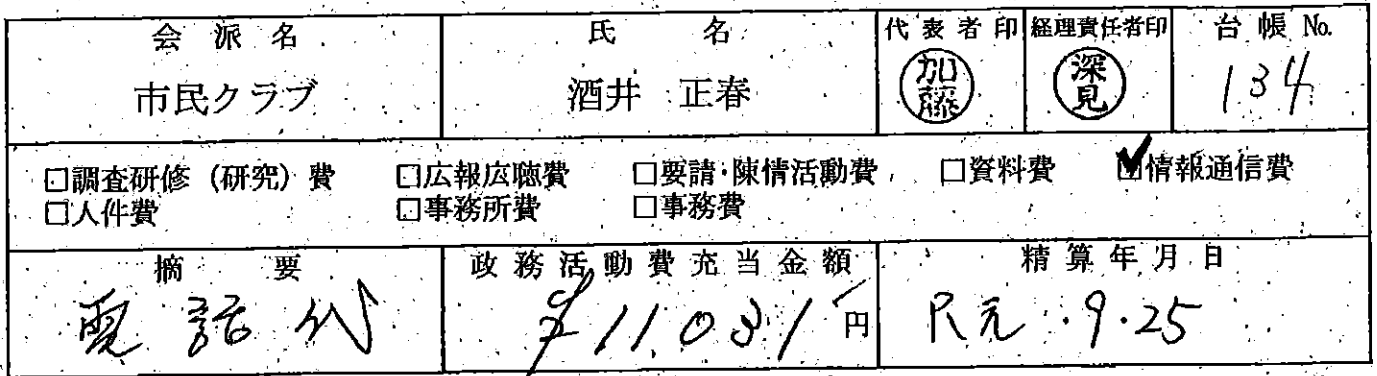 会派名 氏名 代表者印 経理責任者印 台帳 No.
市民クラブ 酒井 正春 加藤 深見 134
□調査研修（研究）費 □広報広聴費 □要請・陳情活動費 □資料費 ☑情報通信費
□人件費 □事務所費 □事務費
摘要 政務活動費充当金額 精算年月日
電話代 ¥11,031円 R元.9.25